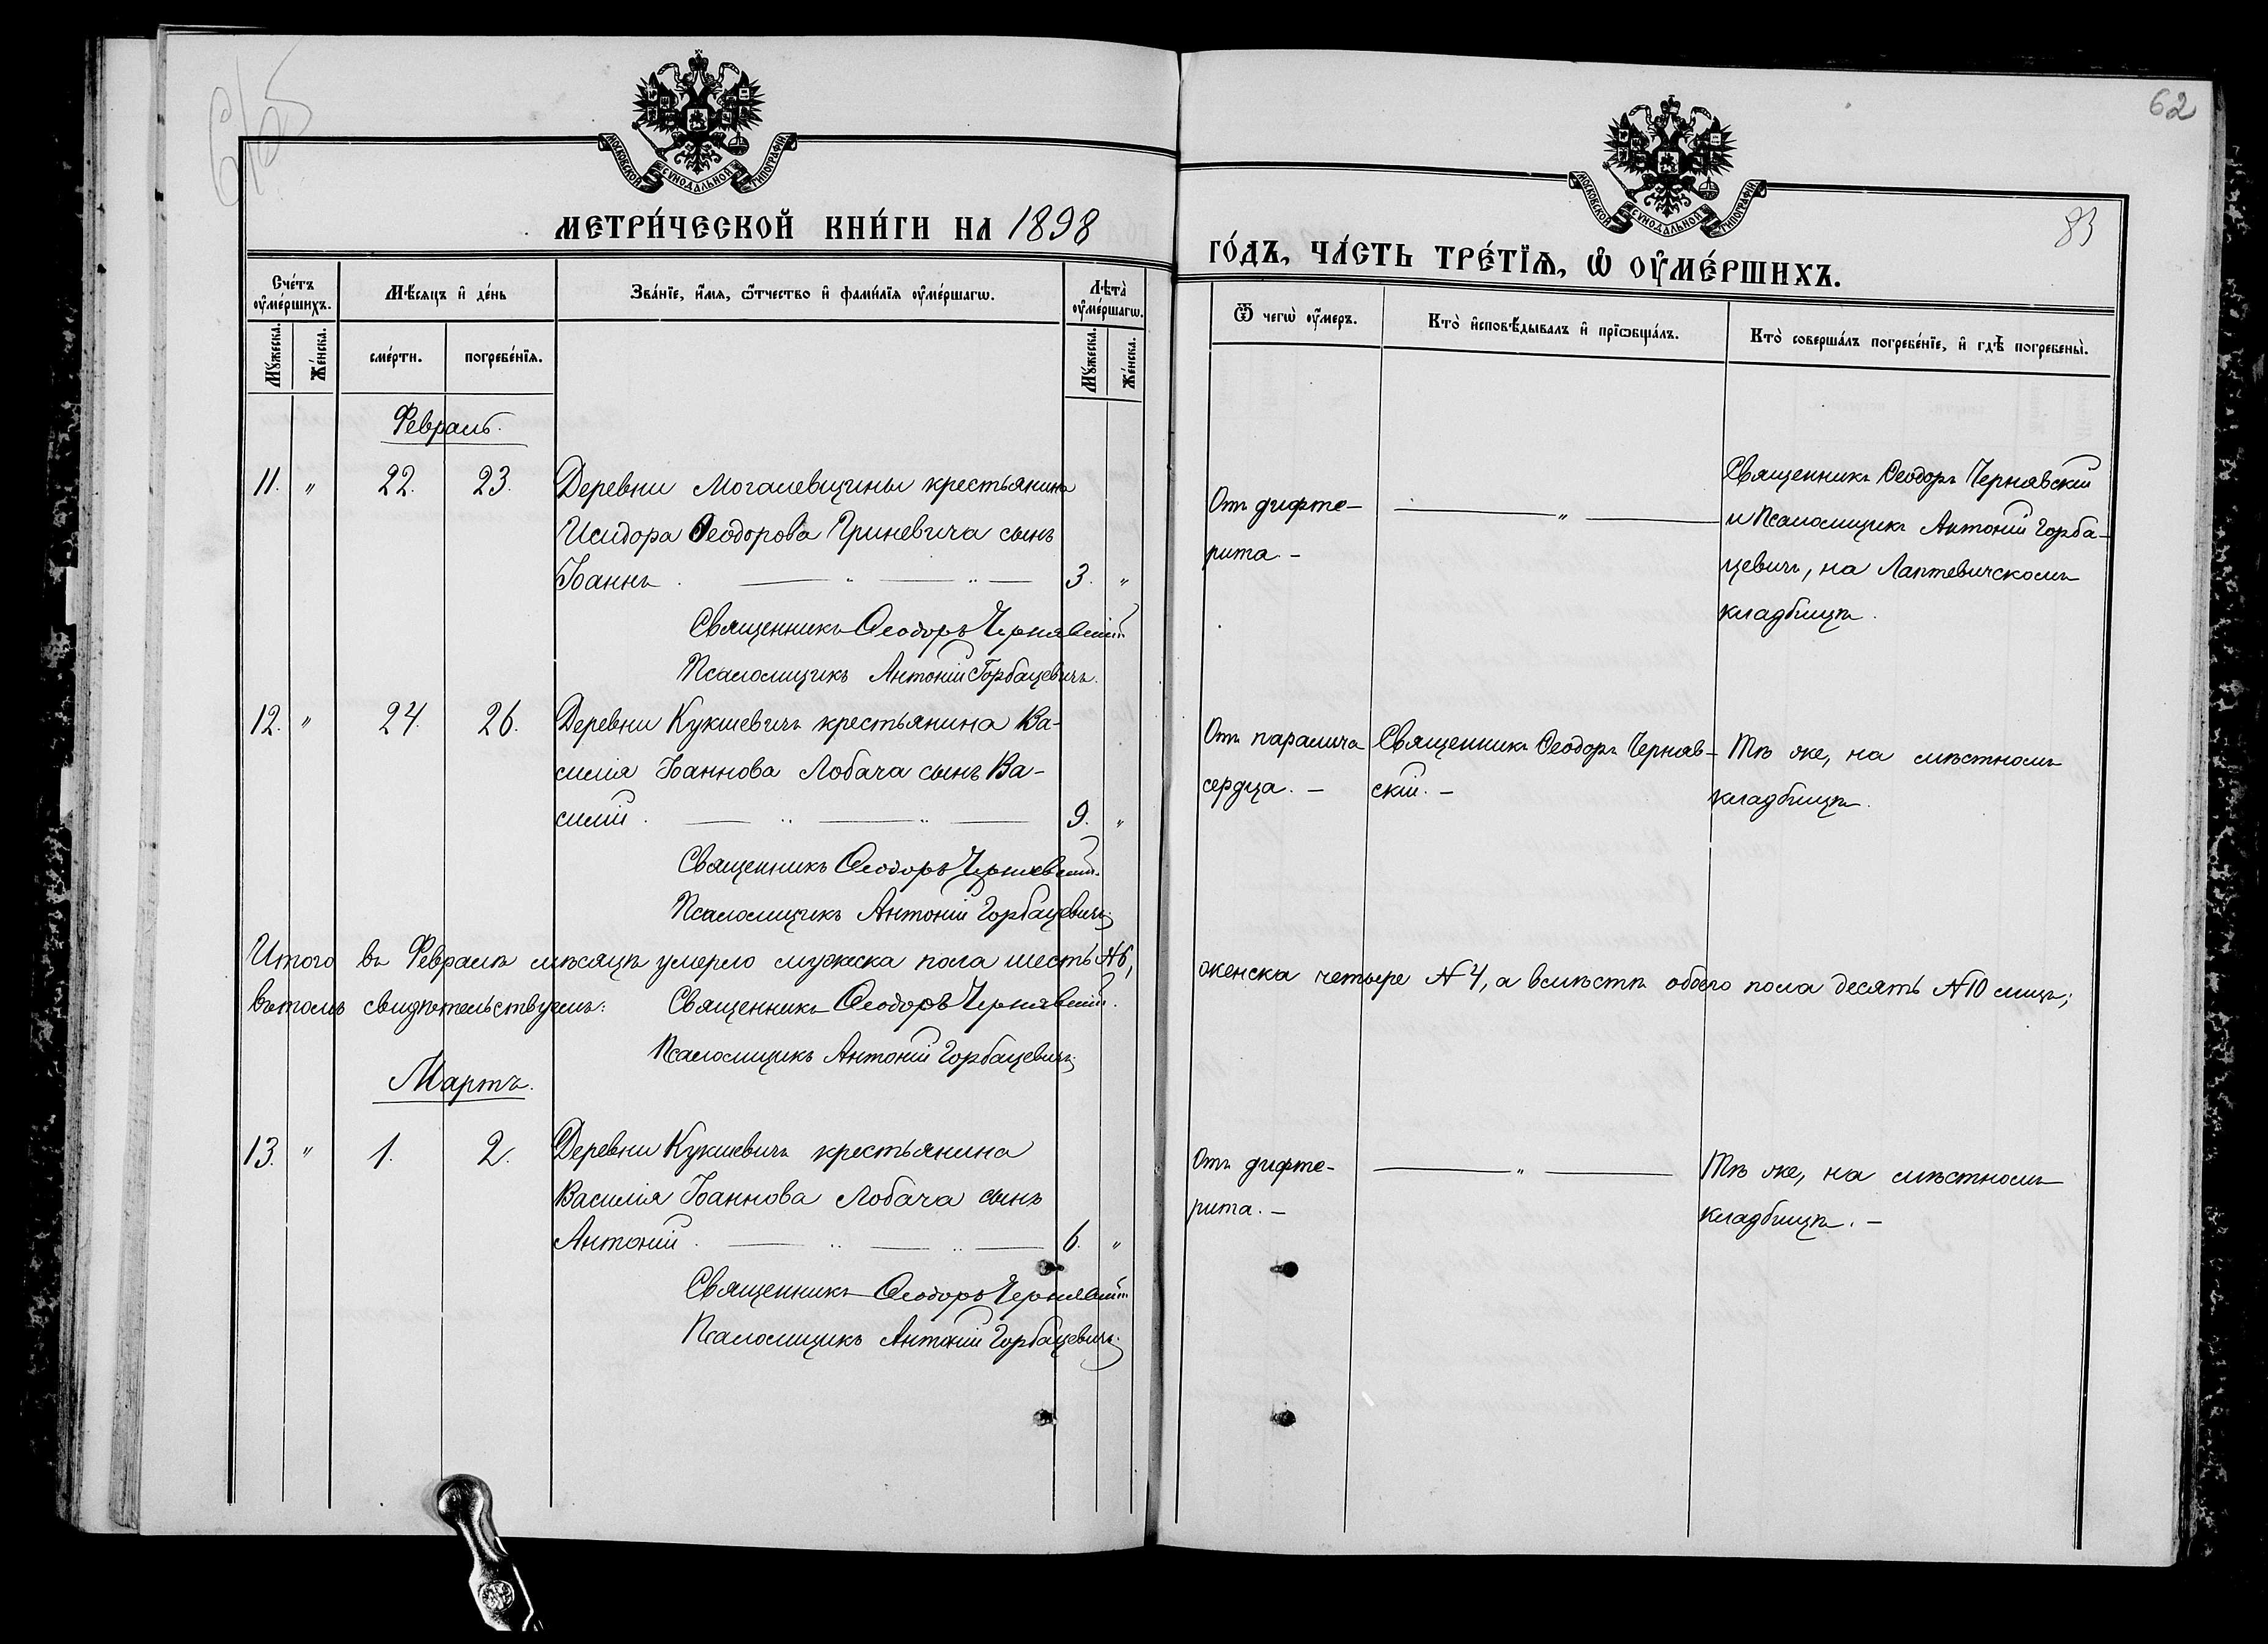 6/65
62
МОСКОВСКОЙ СѴНОДАЛЬНОЙ ТИПОГРАФІИ
МОСКОВСКОЙ СѴНОДАЛЬНОЙ ТИПОГРАФІИ
83
МЕТРИ́ЧЕСКОЙ КНИ́ГИ НА 1898
ГО́ДЪ, ЧА́СТЬ ТРЕ́ТІѦ, Ѽ ОУ҆МЕ́РШИХЪ.
Сче́тъ оу҆ме́ршихъ.
Мѣ́сяцъ и҆ де́нь
Зва́нїе, и҆́мя, ѻ҆́тчество и҆ фами́лїя оу҆ме́ршагѡ.
Лѣта̀ оу҆ме́ршагѡ.
Ѿ чегѡ̀ оу҆́меръ.
Кто̀ и҆сповѣ́дывалъ и҆ прїѡбща́лъ.
Кто̀ соверша́лъ погребе́нїе, и҆ гдѣ̀ погребены̀.
Му́жеска.
Же́нска.
сме́рти.
погребе́нїя.
Му́жеска.
Же́нска.
Февраль.
11. " 22. 23. Деревни Могашевщины крестьянина
Исидора Ѳеодорова Гриневича сынъ
Іоаннъ. 3. "
Священникъ Ѳеодоръ Чернявскій
Псаломщикъ Антоній Горбацевичъ.
Отъ дифте-
рита. -
"
Священникъ Ѳеодоръ Чернявскій
и Псаломщикъ Антоній Горба-
цевичъ, на Лаптевичскомъ
кладбищѣ.
12. " 24. 26. Деревни Кукшевичъ крестьянина Ва-
силія Іоаннова Лобача сынъ Ва-
силій. 9. "
Священникъ Ѳеодоръ Чернявскій.
Псаломщикъ Антоній Горбацевичъ.
Отъ паралича
сердца. -
Священникъ Ѳеодоръ Черняв-
скій. -
Тѣ же, на мѣстномъ
кладбищѣ.
Итого въ Февралѣ мѣсяцѣ умерло мужеска пола шесть №6,
женска четыре №4, а вмѣстѣ обоего пола десять №10 лицъ;
въ томъ свидѣтельствуемъ: Священникъ Ѳеодоръ Чернявскій.
Псаломщикъ Антоній Горбацевичъ.
Мартъ.
13. " 1. 2. Деревни Кукшевичъ крестьянина
Василія Іоаннова Лобача сынъ
Антоній. 6. "
Священникъ Ѳеодоръ Чернявскій
Псаломщикъ Антоній Горбацевичъ.
Отъ дифте-
рита. -
"
Тѣ же, на мѣстномъ
кладбищѣ. -